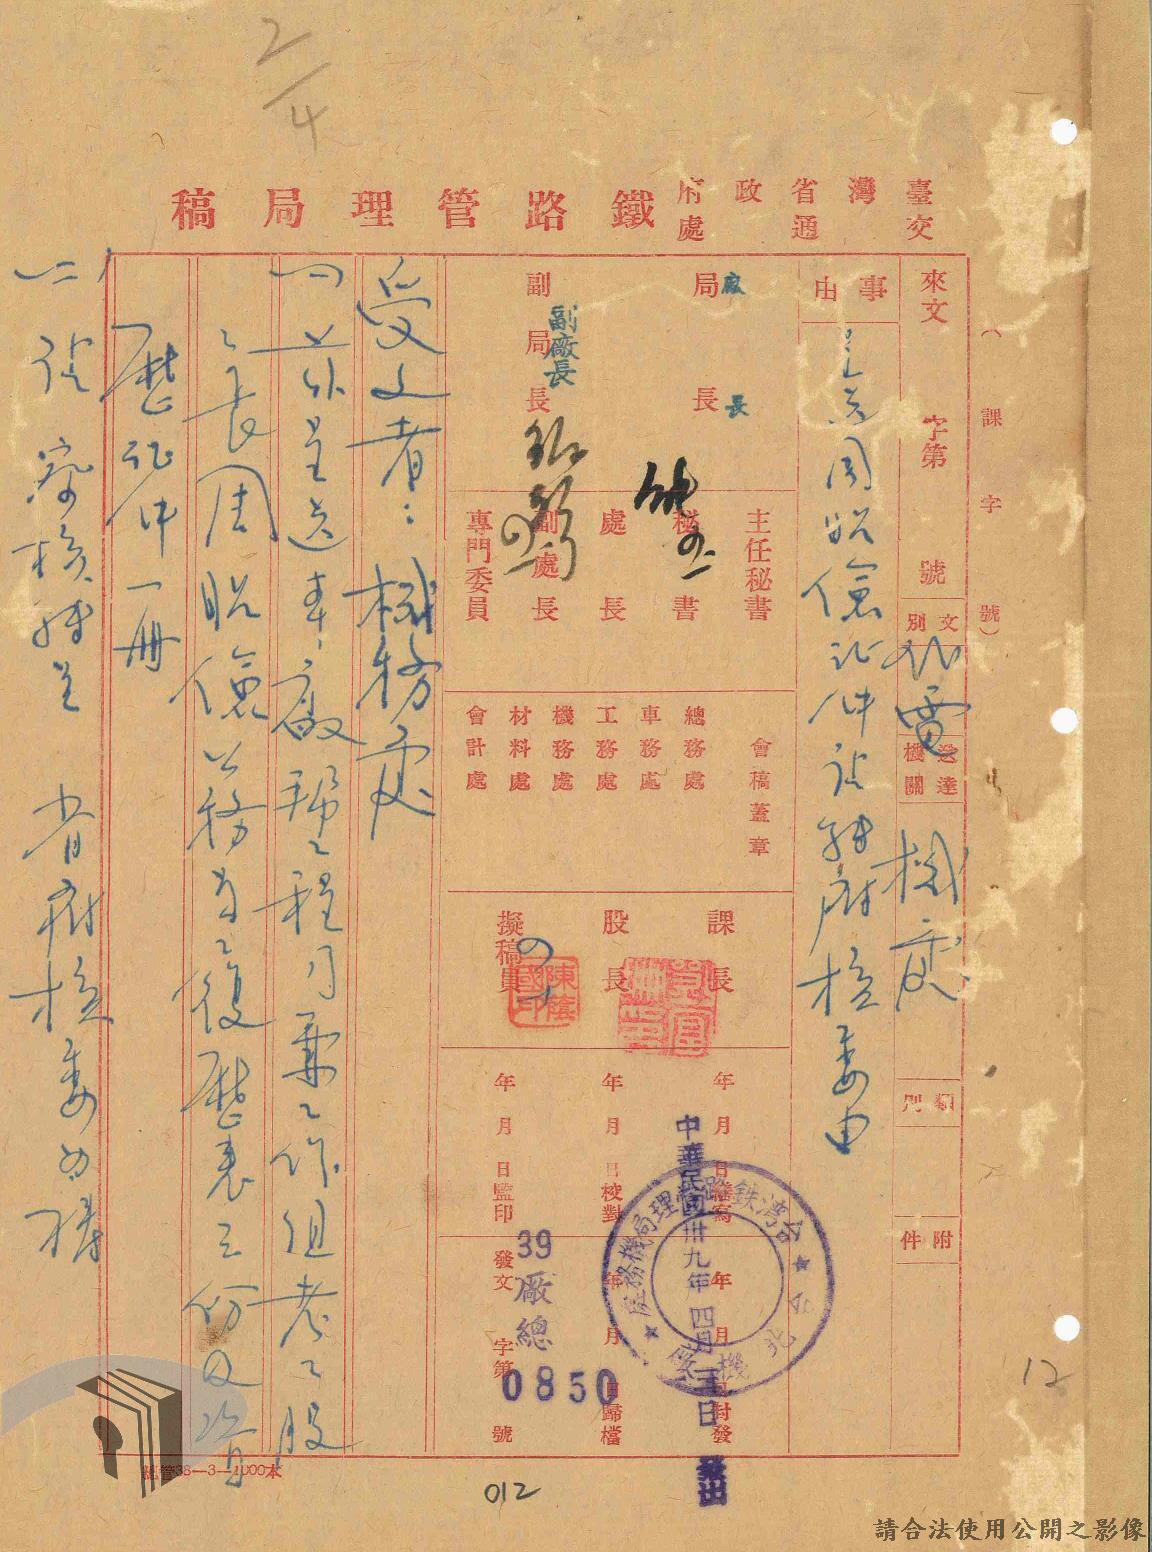 2/4
臺灣省政府
交通處
鐵路管理局稿
（課字號）
來文 字第 號
文別
代電
送達機關
機處
類別
附件
事由
周貺億証件請轉府核委由
局長
廠長
副局長
副廠長
主任秘書
秘書
處長
副處長
專門委員
會稿蓋章
總務處
車務處
工務處
機務處
材料處
會計處
課長
股長
擬稿員
陳蔭國印
年月日繕寫
年月日校對
年月日監印
年月日封發
年月日歸檔
發文 字第 號
39廠總
0850
中華民國卅九年四月五日 發出
台灣鉄路管理局機務處
台北機廠
受文者：機務處
一、茲呈送本廠幫工程司兼工作組考工股
長周貺億公務員履歷表三份及資
歷証件一冊
二、請察核轉呈 省府核委為禱
總管38—3—1000本
012
12
請合法使用公開之影像